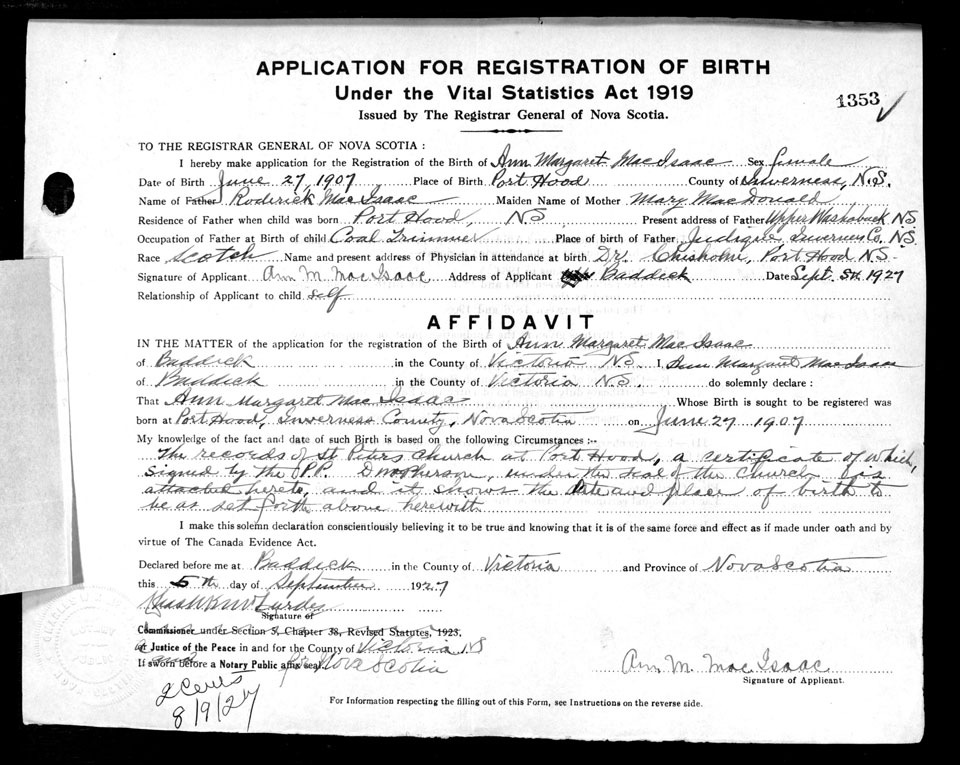 APPLICATION FOR REGISTRATION OF BIRTH
Under the Vital Statistics Act 1919
1353
Issued by The Registrar General of Nova Scotia.
TO THE REGISTRAR GENERAL OF NOVA SCOTIA :
I hereby make application for the Registration of the Birth of Ann Margaret MacIsaac Sex female
Date of Birth June 27, 1907 Place of Birth Port Hood County of Inverness, N.S.
Name of Father Roderick MacIsaac Maiden Name of Mother Mary MacDonald
Residence of Father when child was born Port Hood, NS Present address of Father Upper Washaback NS
Occupation of Father at Birth of child Coal Trimmer Place of birth of Father Judique Inverness Co. NS
Race Scotch Name and present address of Physician in attendance at birth Dr. Chisholm, Port Hood NS.
Signature of Applicant Ann M. Mac Isaac Address of Applicant Baddeck Date Sept. 5th 1927
Relationship of Applicant to child self
AFFIDAVIT
IN THE MATTER of the application for the registration of the Birth of Ann Margaret MacIsaac
of Baddeck in the County of Victoria NS. I Ann Margaret MacIsaac
of Baddeck in the County of Victoria N.S. do solemnly declare :
That Ann Margaret MacIsaac Whose Birth is sought to be registered was
born at Port Hood, Inverness County, Nova Scotia on June 27 1907
My knowledge of the fact and date of such Birth is based on the following Circumstances :--
The records of St Peters Church at Port Hood, a certificate of which,
signed by the P.P. under the seal of the Church is
attached hereto, and it shows the date and place of birth to
be as set forth above herewith
I make this solemn declaration conscientiously believing it to be true and knowing that it is of the same force and effect as if made under oath and by
virtue of The Canada Evidence Act.
Declared before me at Baddeck in the County of Victoria and Province of Nova Scotia
this 5th day of September 1927
Signature of
Commissioner under Section 5, Chapter 38, Revised Statutes, 1923.
or Justice of the Peace in and for the County of Victoria NS
If sworn before a Notary Public affix seal. for Nova Scotia
Ann M. Mac Isaac
Signature of Applicant.
8/9/27
For Information respecting the filling out of this Form, see Instructions on the reverse side.